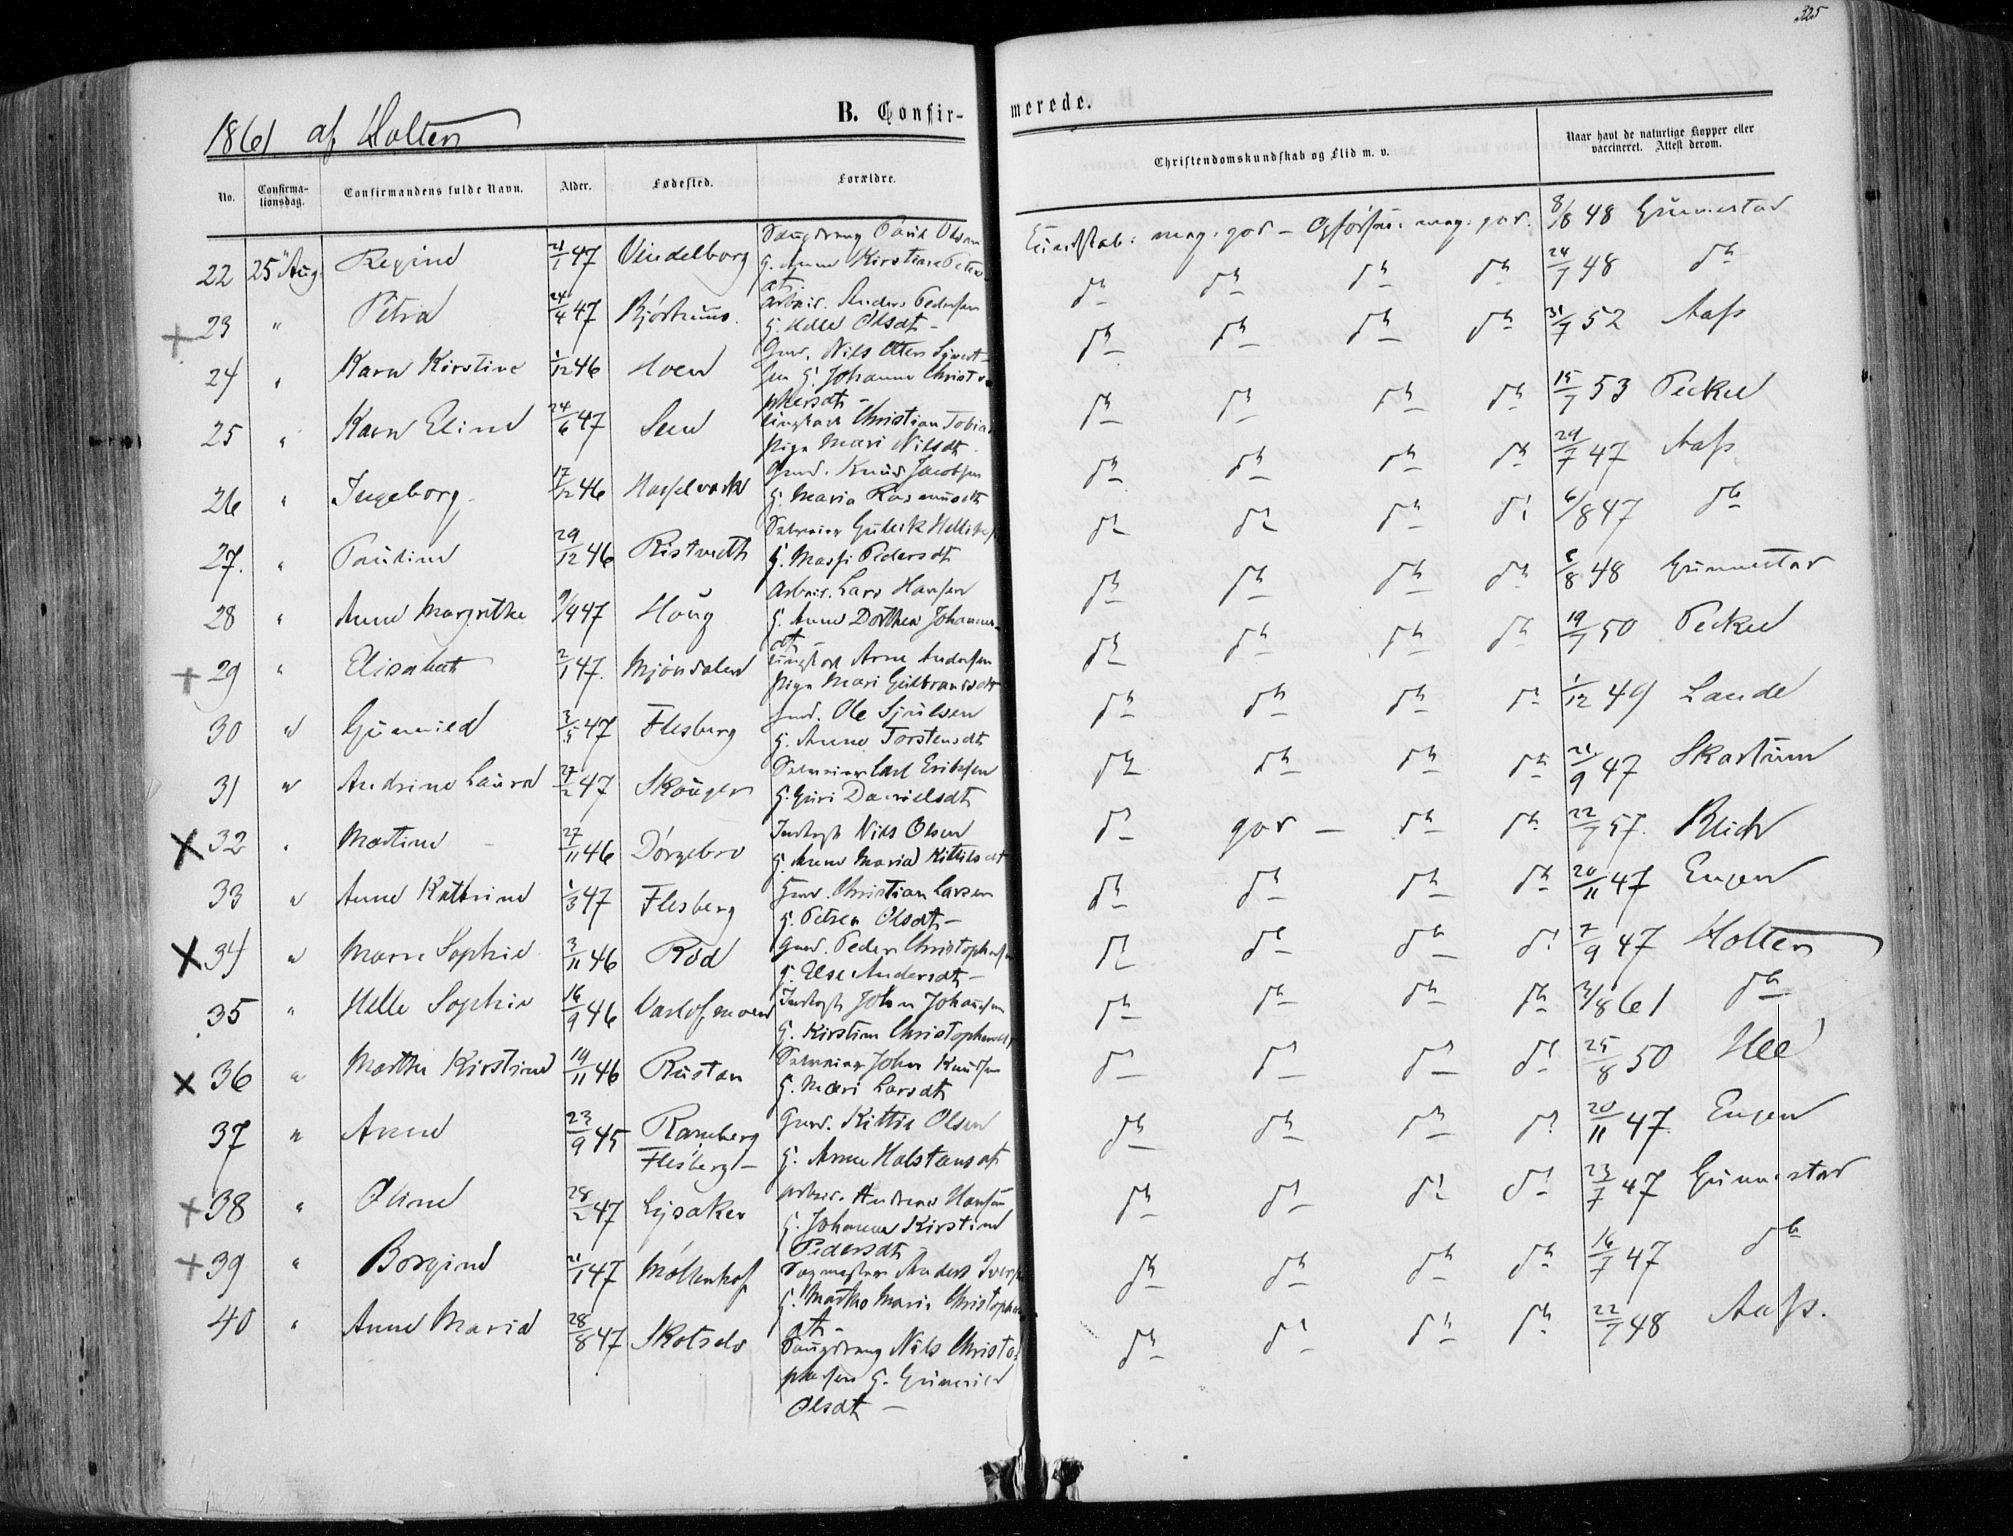 325
1861 af Holten
B. Confir- merede.
No. Confirma-tionsdag. Confirmandens fulde Navn. Alder. Fødested. Forældre. Christendomskundskab og Flid m. v. Naar havt de naturlige Kopper eller vaccineret. Attest derom.
22 25 Aug. Regine 21/1 47 Vindelborg Poul Olsen G. Anne Kirstine Peters dtr. Kundskab: meg. god – Opførsel: meg. god. 8/8 48 Gunnestad
+ 23 " Petra 24/4 47 Arbeid. Anders Pedersen G. Helle Olsdtr – do do do do 24/7 48 do
24 " Karn Kirstine 1/12 46 Hoen Gmd. Nils Ottersen G. Johanne Christophersdtr – do do do do 31/7 52 Aass
25 " Karn Eline 24/6 47 Seen Ungkarl Christian Tobias Pige Mari Nilsdtr. do do do do 15/7 53 Peckel
26 " Ingeborg 17/12 46 Hasselvold Gmd. Knud Jacobsen G. Maria Rasmusdtr do do do do 29/7 47 Aass
27. " Pauline 29/12 46 Ristvedt Selveier Gulich G. Massi Pedersdtr do do do do 6/8 47 do
28 " Anne Margrethe 9/4 47 Houg Arbeid. Lars Hansen G. Anne Dorthea Johannes-dtr do do do do 8/8 48 Gunnestad
+ 29 " Elisabet 2/1 47. Mjøndalen Ungkarl Arne Andersen Pige Mari Gulbrandsdtr do do do do 19/7 50 Peckel
30 " Gunnild 3/5 47 Flesberg Gmd. Ole Sjulsen G. Anne Torstensdtr do do do do 1/12 49 Lande
31 " Andrine Laura 27/2 47 Skouger Selveier Carl Eriksen G. Guri Danielsdtr do do do do 21/9 47 Skartum
X 32 " Martine 27/11 46 Dørgebro Inderst Nils Olsen G. Anne Maria Kittilsdtr do god – do do 22/7 57. Blich
33 " Anne Kathrine 1/3 47 Flesberg Gmd. Christian Larsen G. Petrea Olsdtr – do do do do 20/11 47 Engen
X 34 " Maren Sophie 3/11 46 Rød Gmd. Peder Christophersen G. Else Andersdtr – do do do do 7/9 47 Holten
35 " Helle Sophie 16/9 46 Inderst John Johannesen G. Kirstine Christophersdtr do do do do 3/8 61 do
x 36 " Marthe Kirstine 19/11 46 Rustan Selveier John Knudsen G. Mari Larsdtr do do do do 25/8 50 Hee
37 " Anne 23/9 45 Ramberg Flesberg – Gmd. Kittil Olsen G. Anne Halstensdtr do do do do 20/11 47. Engen
+ 38 " Oline 28/2 47 Lysaker Arbeid. Andreas Hansen G. Johanne Kirstine Pedersdtr do do do do 23/7 47 Gunnestad
+ 39 " Borgine 21/1 47 Møllenhof Sagmester Anders Iversen G. Marthe Marie Christophersdtr do do do do 16/7 47 do
40 " Anne Maria 28/8 47 Skotselv Nils Christophersen G. Gunnild Olsdtr – do do do do 22/7 48 Aass.